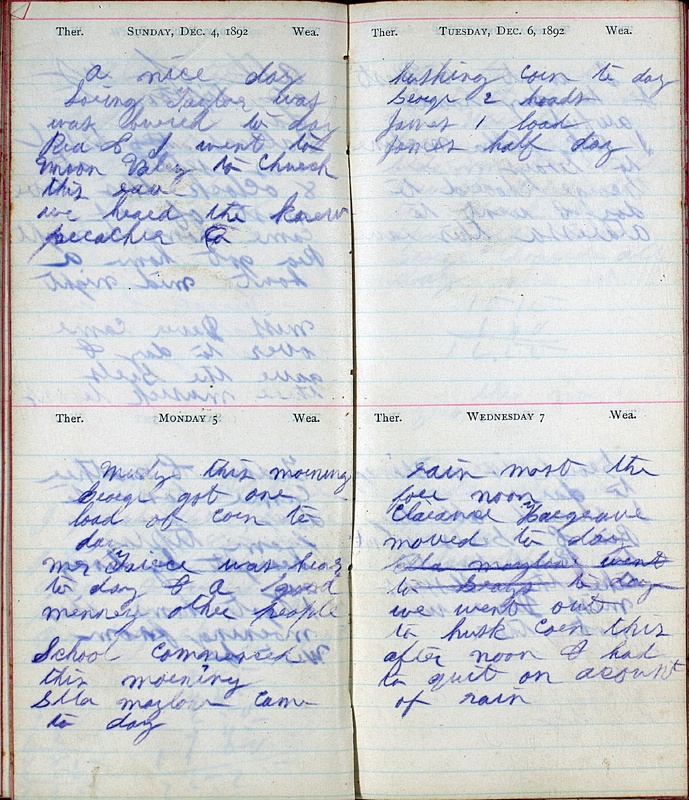 Ther. Sunday, Dec. 4, 1892 Wea.
a nice day
Loring Taylor was
was burred to day
Red & I went to
Moon Valey to Church
this eav
we heard the knew
preacher
Ther. Monday 5 Wea.
Mudy this morning
George got one
load of corn to
day
Mr. Trice was hear
to day & a good
menney other people
School commenced
this morning
Ella mazlow Cam
to day
Ther. Tuesday, Dec. 6, 1892 Wea.
husking corn to day
George 2 loads
James 1 load
James half day
Ther. Wednesday 7 Wea.
rain most the
fore noon
Clarance Hargrave
moved to day
Ella mazlow went
to Grays to day
we went out
to husk corn this
after noon & had
to quit on acount
of rain